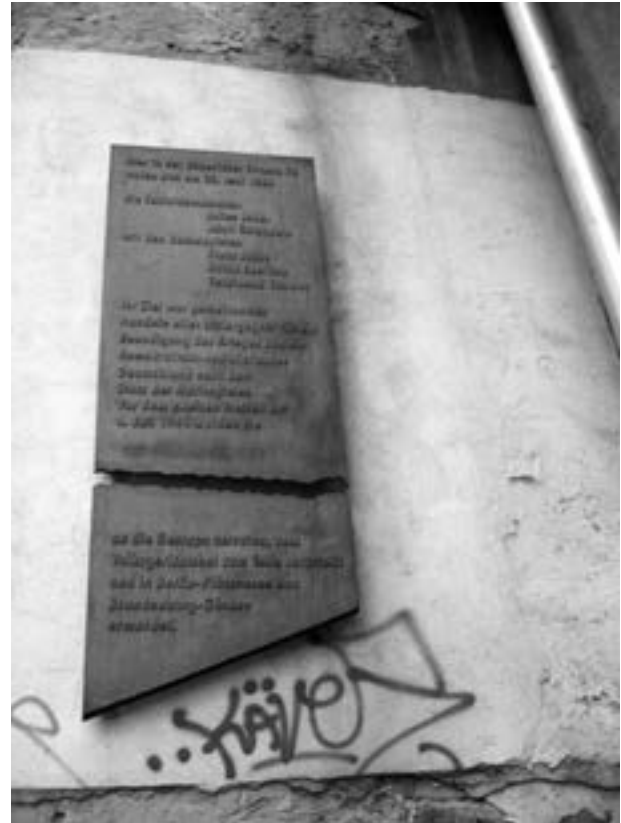 Hier in der Köpenicker Strasse 76
trafen sich am 22. Juni 1944
die Sozialdemokraten
Julius Leber
Adolf Reichwein
mit den Kommunisten
Franz Jacob
Anton Saefkow
Ferdinand Thomas
Ihr Ziel war gemeinsames
Handeln aller Hitlergegner für die
Beendigung des Krieges und ein
Deutschland nach dem
Sturz der
Vor dem zweiten Treffen am
4. Juli 1944 wurden sie
an die Gestapo verraten, vom
Volksgerichtshof zum Tode verurteilt
und in Berlin-Plötzensee und
Brandenburg-Görden
ermordet.
KÄVE